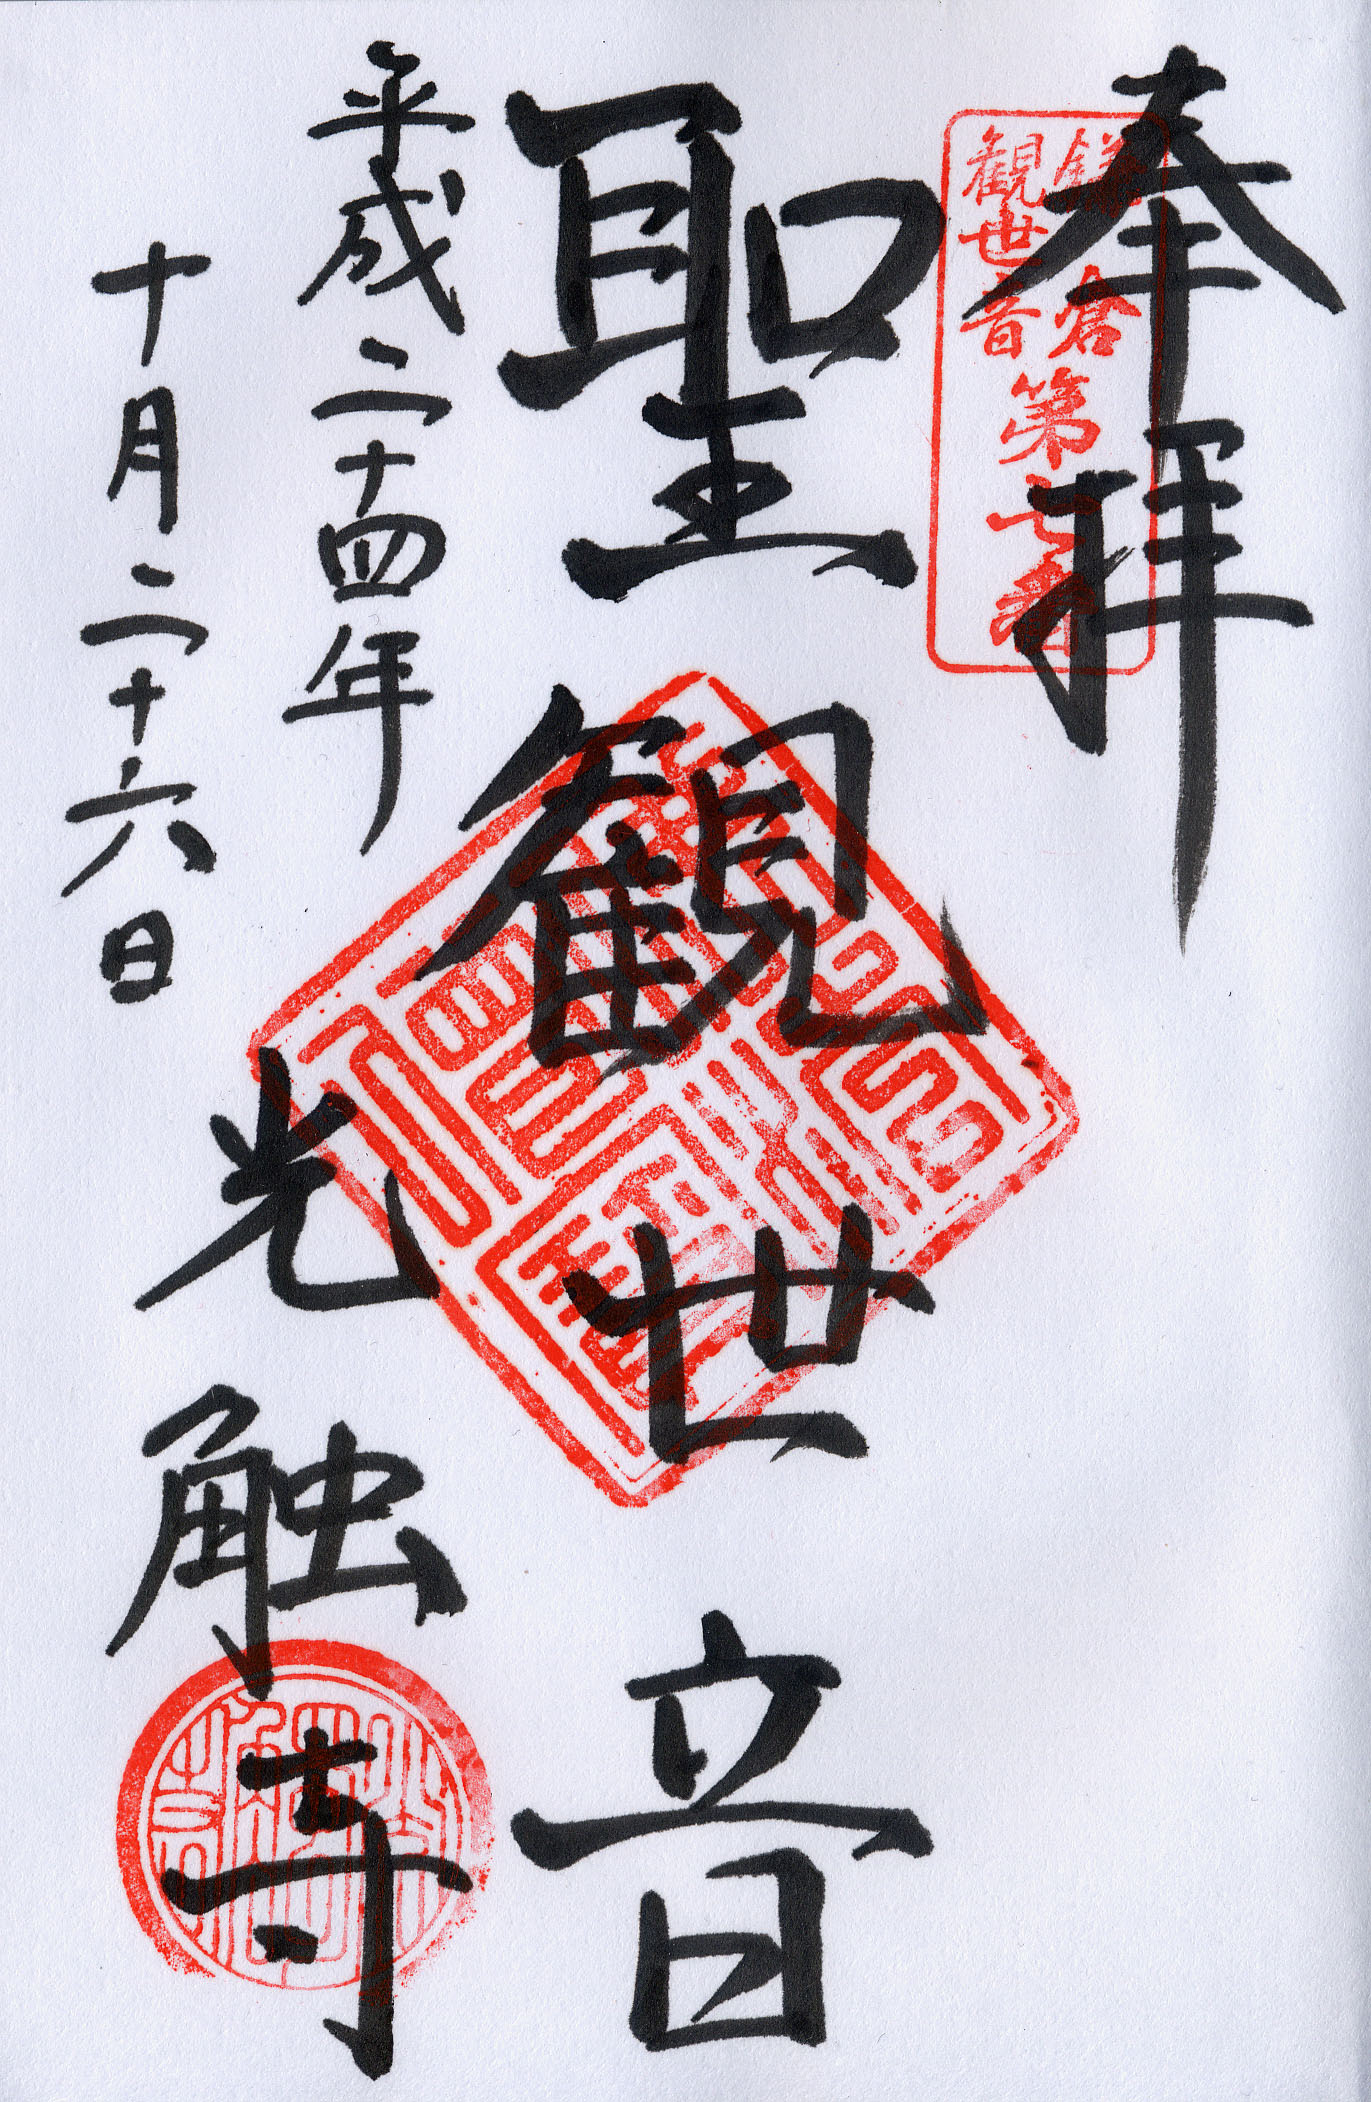 奉拝
鎌倉
観世音
第七番
聖観世音
平成二十四年
十月二十六日
光触寺